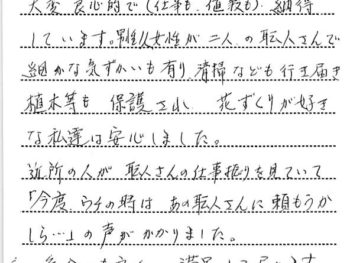 大変 良心的で(仕事も、値段も)納得
しています。男性女性が二人の職人さんで
細かな気ずかいも有り 清掃なども行き届き
植木等も 保護され 花ずくりが好き
な私達は安心しました。
近所の人が 職人さんの仕事振りを見ていて
「今度 ウチの時は あの職人さんに 頼もうか
しら…」の声がかかりました。